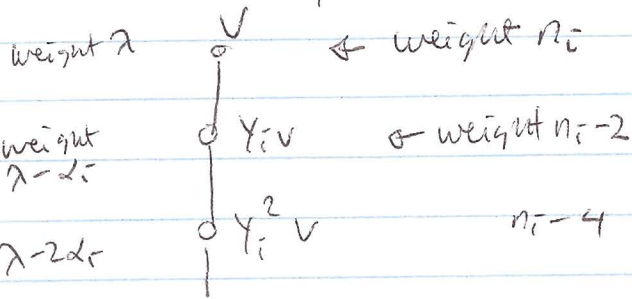 weight λ V ← weight nᵢ
weight λ-αᵢ Yᵢv ← weight nᵢ-2
λ-2αᵢ Yᵢ² v nᵢ-4